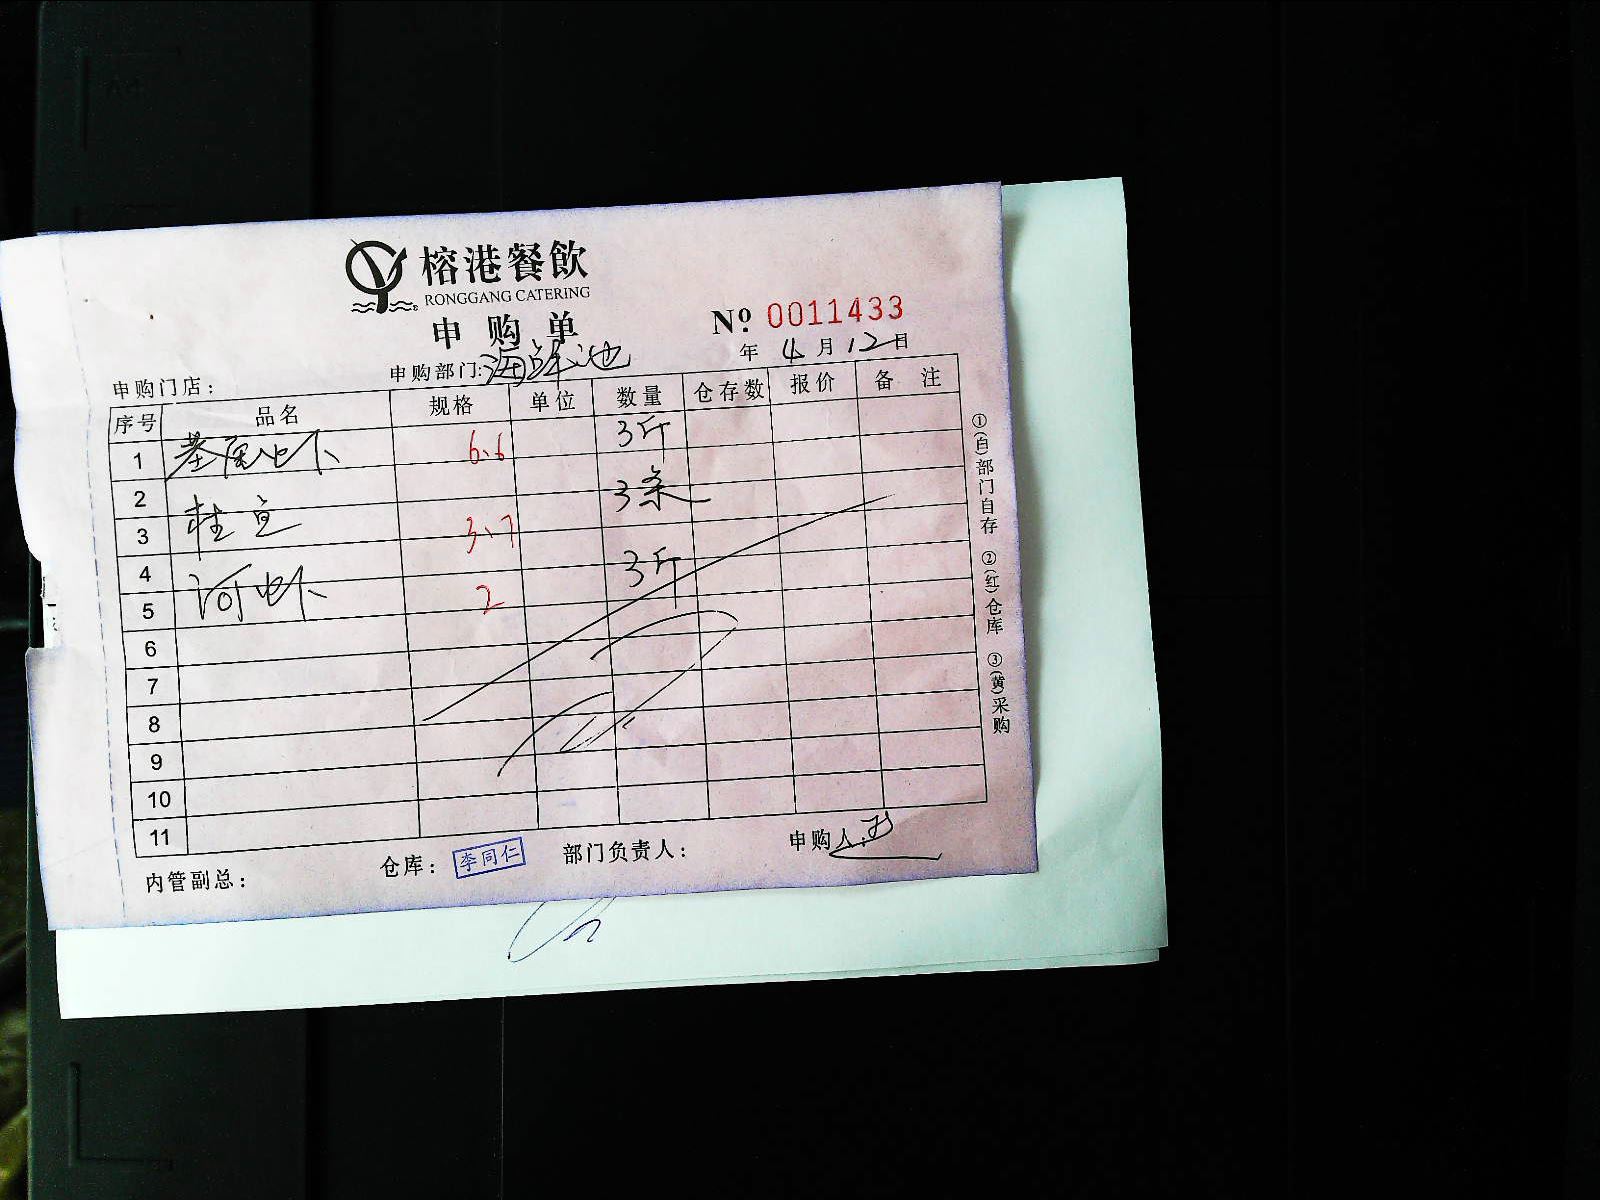 榕港餐飲
RONGGANG CATERING
申购单
№ 0011433
申购门店： 申购部门：海鲜池 年 4 月 12 日
序号 品名 规格 单位 数量 仓存数 报价 备注
1 基围虾 6.6 3斤
2
3 桂鱼 3.7 3条
4
5 河虾 2 3斤
6
7
8
9
10
11
①(白)部门自存 ②(红)仓库 ③(黄)采购
内管副总： 仓库：李同仁 部门负责人： 申购人：